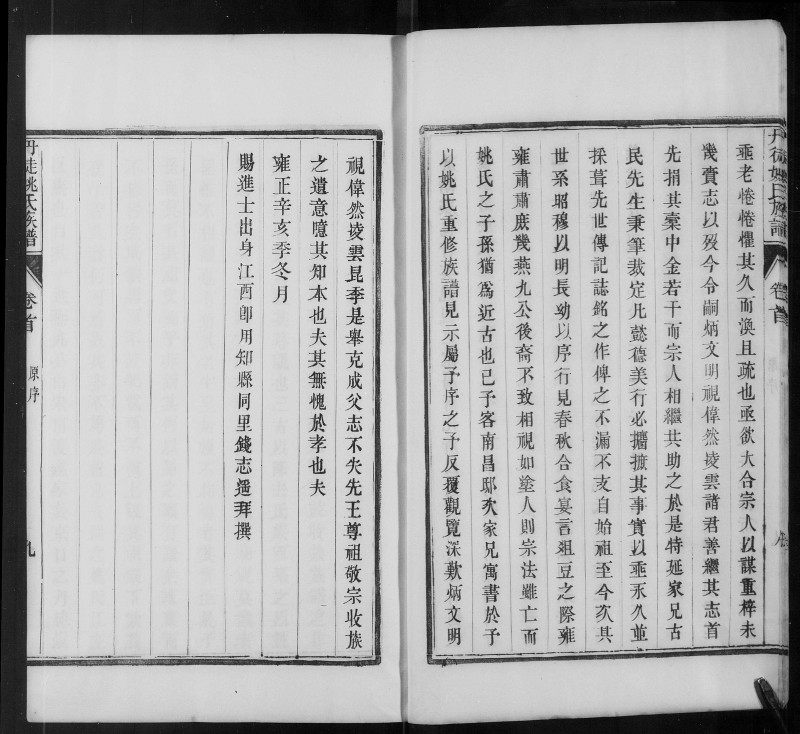 丹徒姚氏族譜
卷首
垂老惓惓懼其久而渙且疏也亟欲大合宗人以謀重梓未
幾賫志以歿今令嗣炳文明視偉然凌雲諸君善繼其志首
先捐其橐中金若干而宗人相繼共助之於是特延家兄古
民先生秉筆裁定凡懿德美行必攟摭其事實以垂永久並
採葺先世傳記誌銘之作俾之不漏不支自始祖至今次其
世系昭穆以明長幼以序行見春秋合食宴言俎豆之際雍
雍肅肅庶幾燕九公後裔不致相視如塗人則宗法雖亡而
姚氏之子孫猶為近古也已予客南昌邸次家兄寓書於予
以姚氏重修族譜見示屬予序之予反覆觀覽深歎炳文明
視偉然凌雲昆季是舉克成父志不失先王尊祖敬宗收族
之遺意噫其知本也夫其無愧於孝也夫
雍正辛亥季冬月
賜進士出身江西即用知縣同里錢志遥拜撰
丹徒姚氏族譜
卷首
原序
九